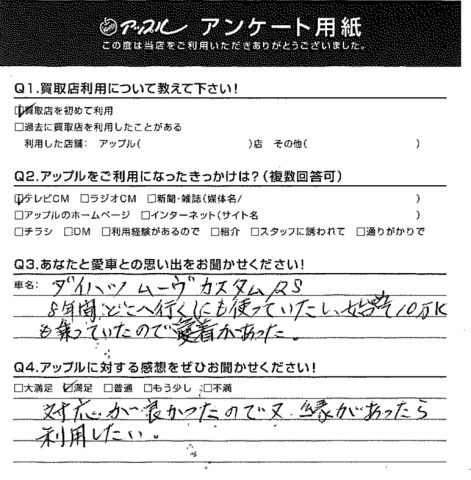 アップル アンケート用紙
この度は当店をご利用いただきありがとうございました。
Q1.買取店利用について教えて下さい!
☑買取店を初めて利用
□過去に買取店を利用したことがある
利用した店舗: アップル( )店 その他( )
Q2.アップルをご利用になったきっかけは?(複数回答可)
☑テレビCM □ラジオCM □新聞・雑誌(媒体名/ )
□アップルのホームページ □インターネット(サイト名 )
□チラシ □DM □利用経験があるので □紹介 □スタッフに誘われて □通りがかりで
Q3.あなたと愛車との思い出をお聞かせください!
車名: ダイハツ ムーヴ カスタム RS
8年間、どこへ行くにも使っていたし、 10万K
も乗っていたので愛着があった。
Q4.アップルに対する感想をぜひお聞かせください!
□大満足 ☑満足 □普通 □もう少し □不満
対応が良かったので又、縁があったら
利用したい。